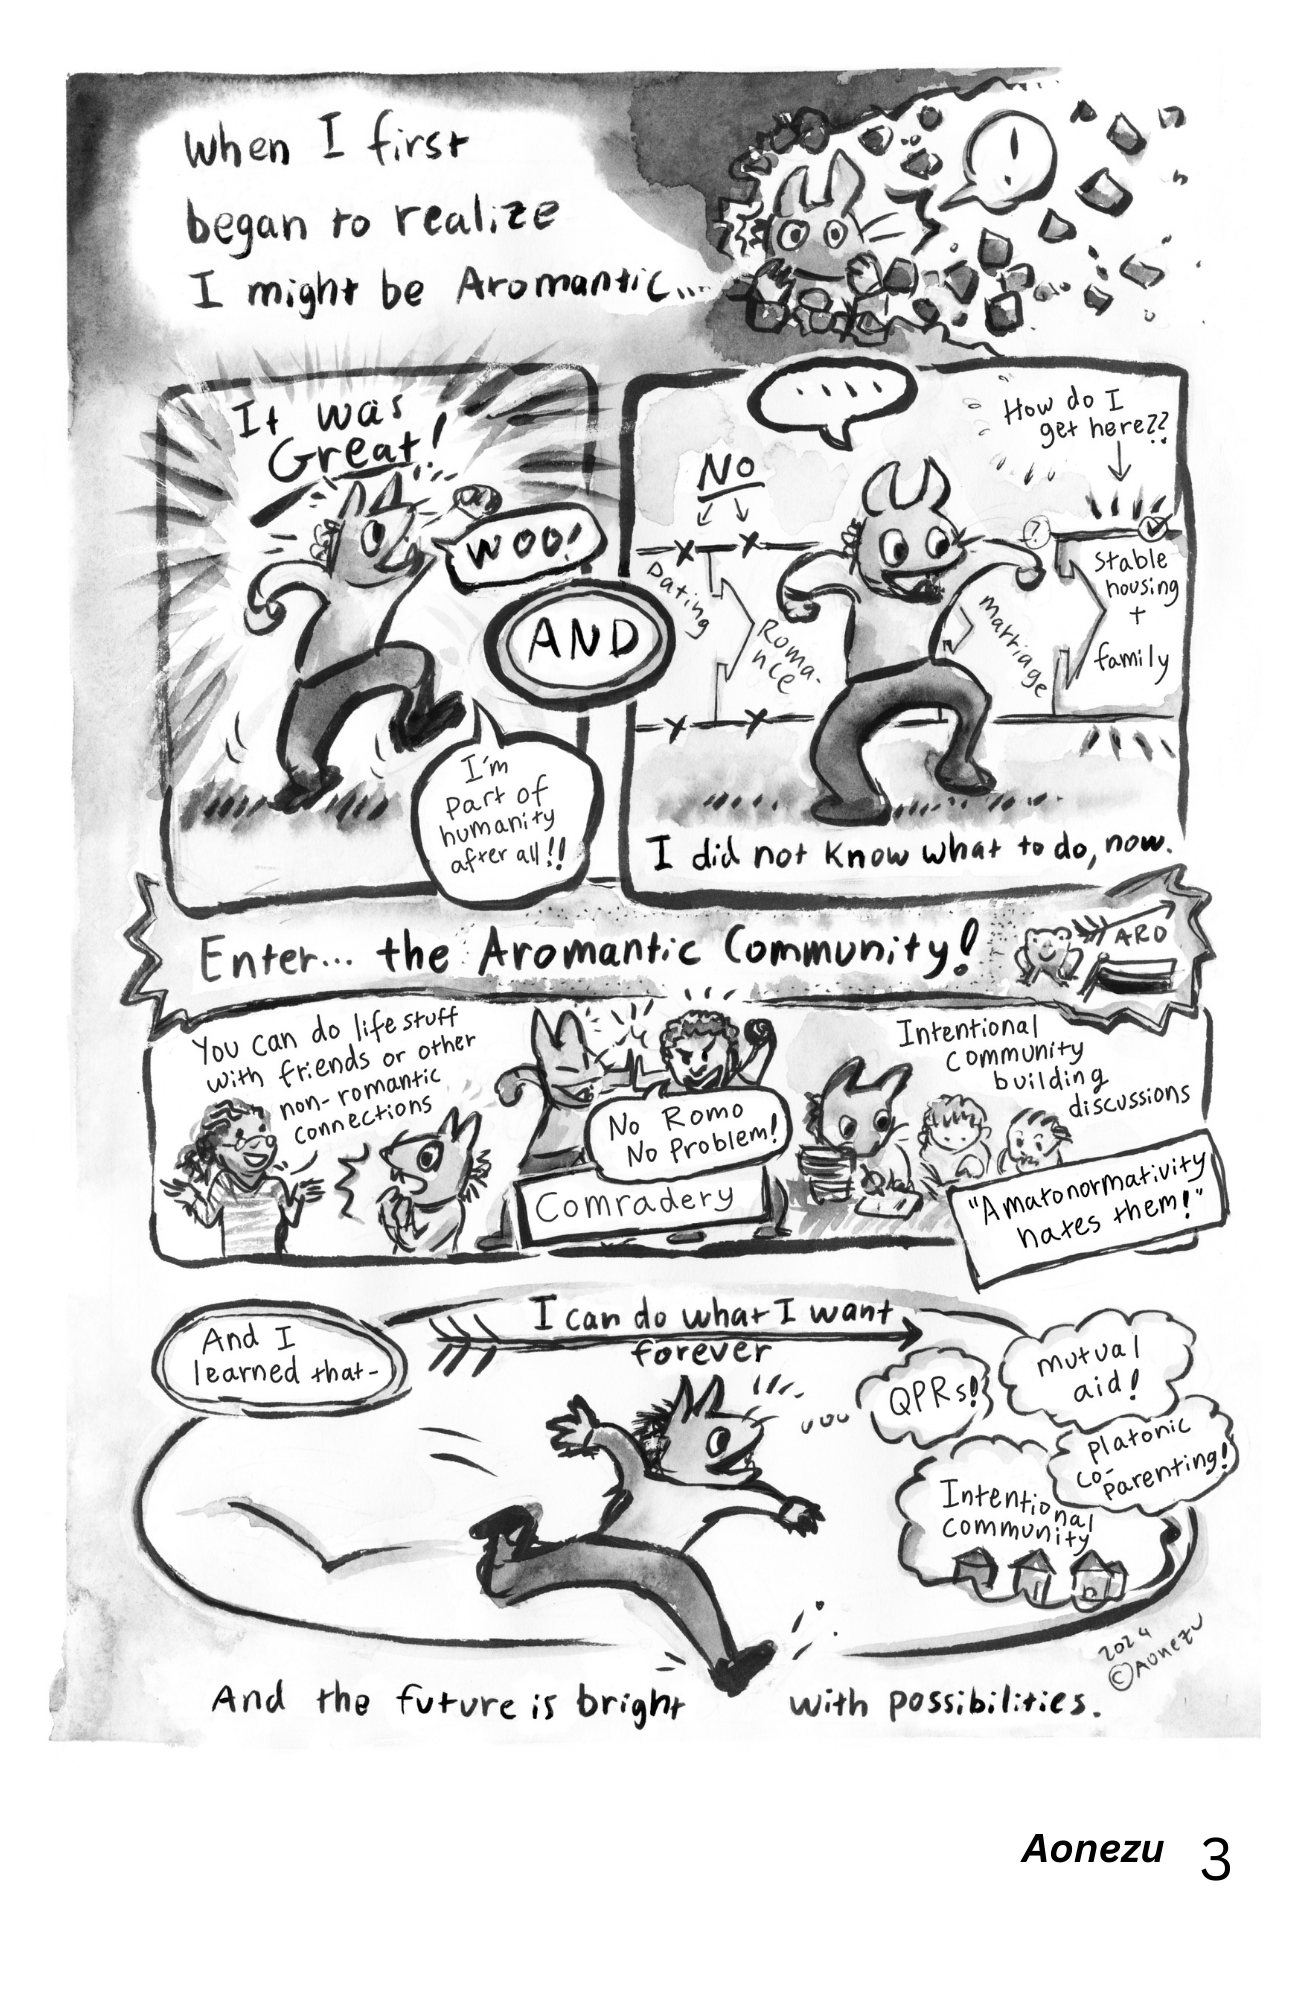 When I first
began to realize
I might be Aromantic...
!
It was
Great!
WOO!
AND
I'm
part of
humanity
after all!!
....
NO
How do I
get here??
Dating
Roma-
nce
marriage
?
Stable
housing
+
family
I did not know what to do, now.
Enter... the Aromantic Community!
ARO
You can do life stuff
with friends or other
non-romantic
connections
No Romo
No Problem!
Comradery
Intentional
community
building
discussions
"Amatonormativity
hates them!"
And I
learned that-
I can do what I want
forever
QPRs!
mutual
aid!
platonic
co-
parenting!
Intentional
community
2024
©Aonezu
And the future is bright with possibilities.
Aonezu 3